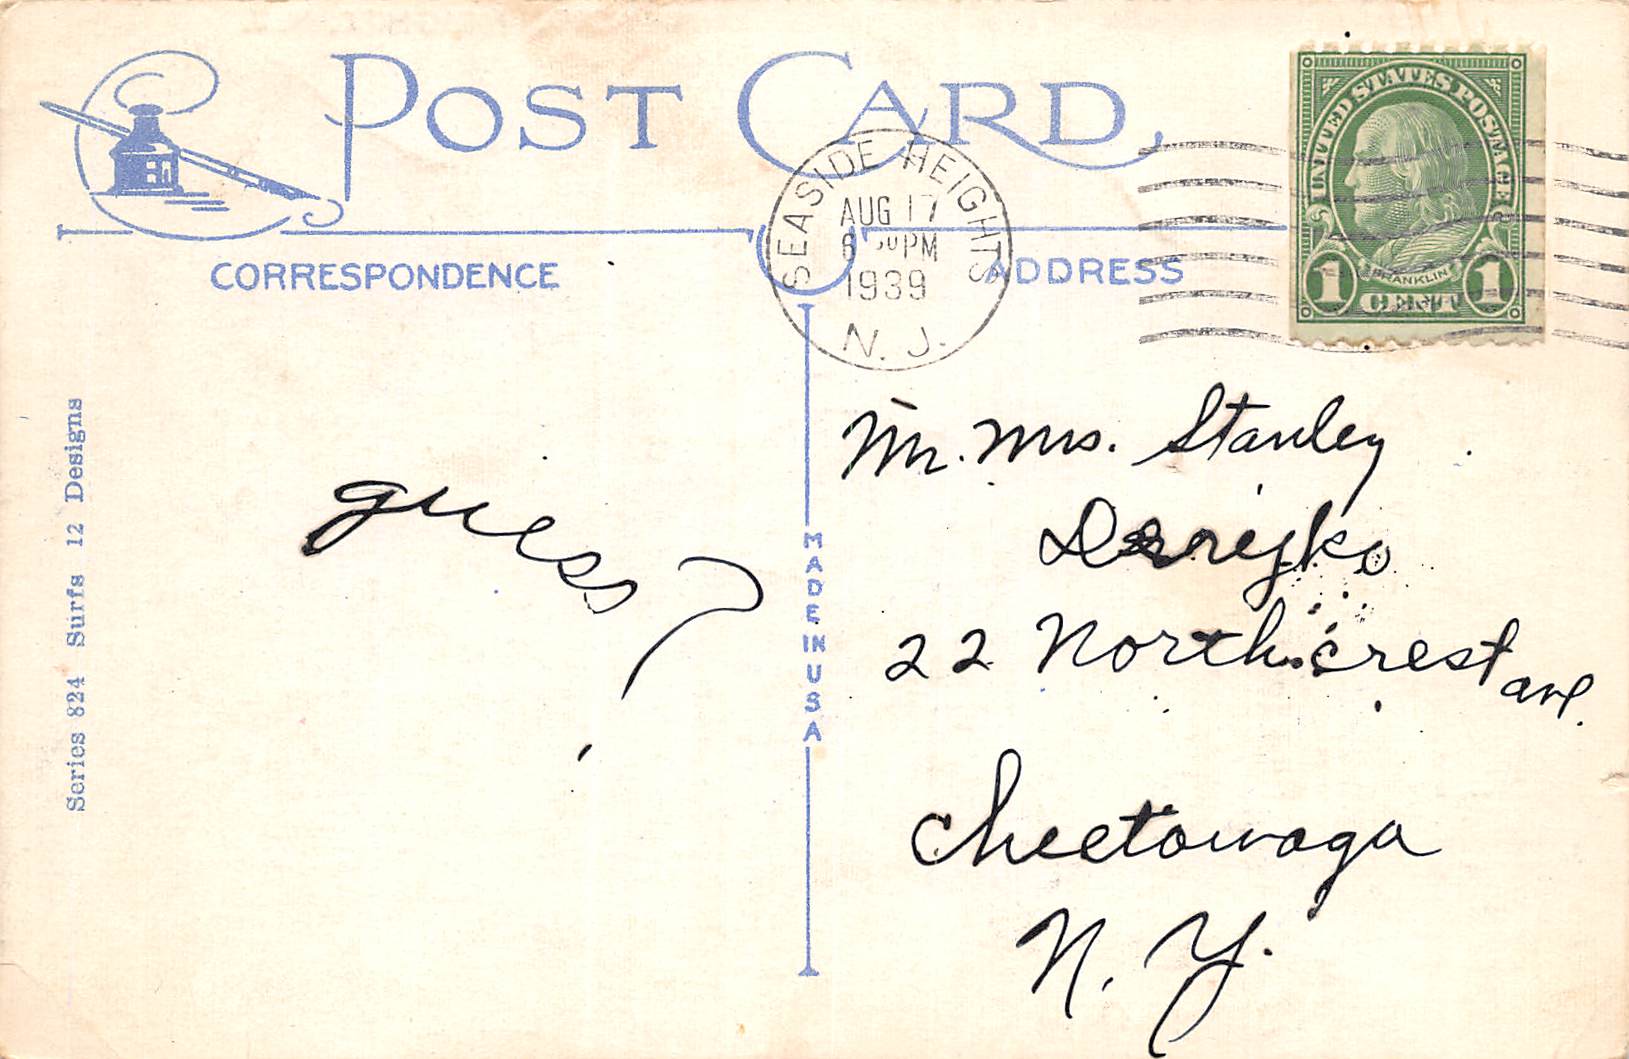 POST CARD
CORRESPONDENCE
ADDRESS
SEASIDE HEIGHTS
AUG 17
PM
1939
N. J.
UNITED STATES POSTAGE
FRANKLIN
1 CENT 1
Series 824 Surfs 12 Designs
MADE IN USA
guess?
Mr. Mrs. Stanley
22 Northcrest ave.
Cheetowaga
N. Y.